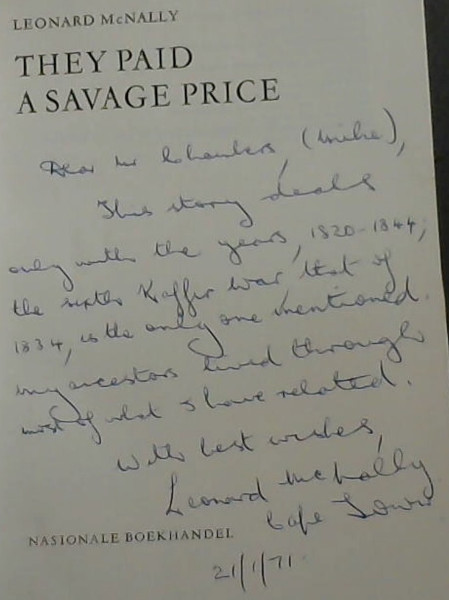 LEONARD McNALLY
THEY PAID
A SAVAGE PRICE
Dear Mr Chambers, (Mike),
This story deals
only with the years, 1820-1844;
the sixth Kaffir War that of
1834, is the only one mentioned.
my ancestors lived through
most of what I have related.
With best wishes,
Leonard McNally
Cape Town
NASIONALE BOEKHANDEL
21/1/71